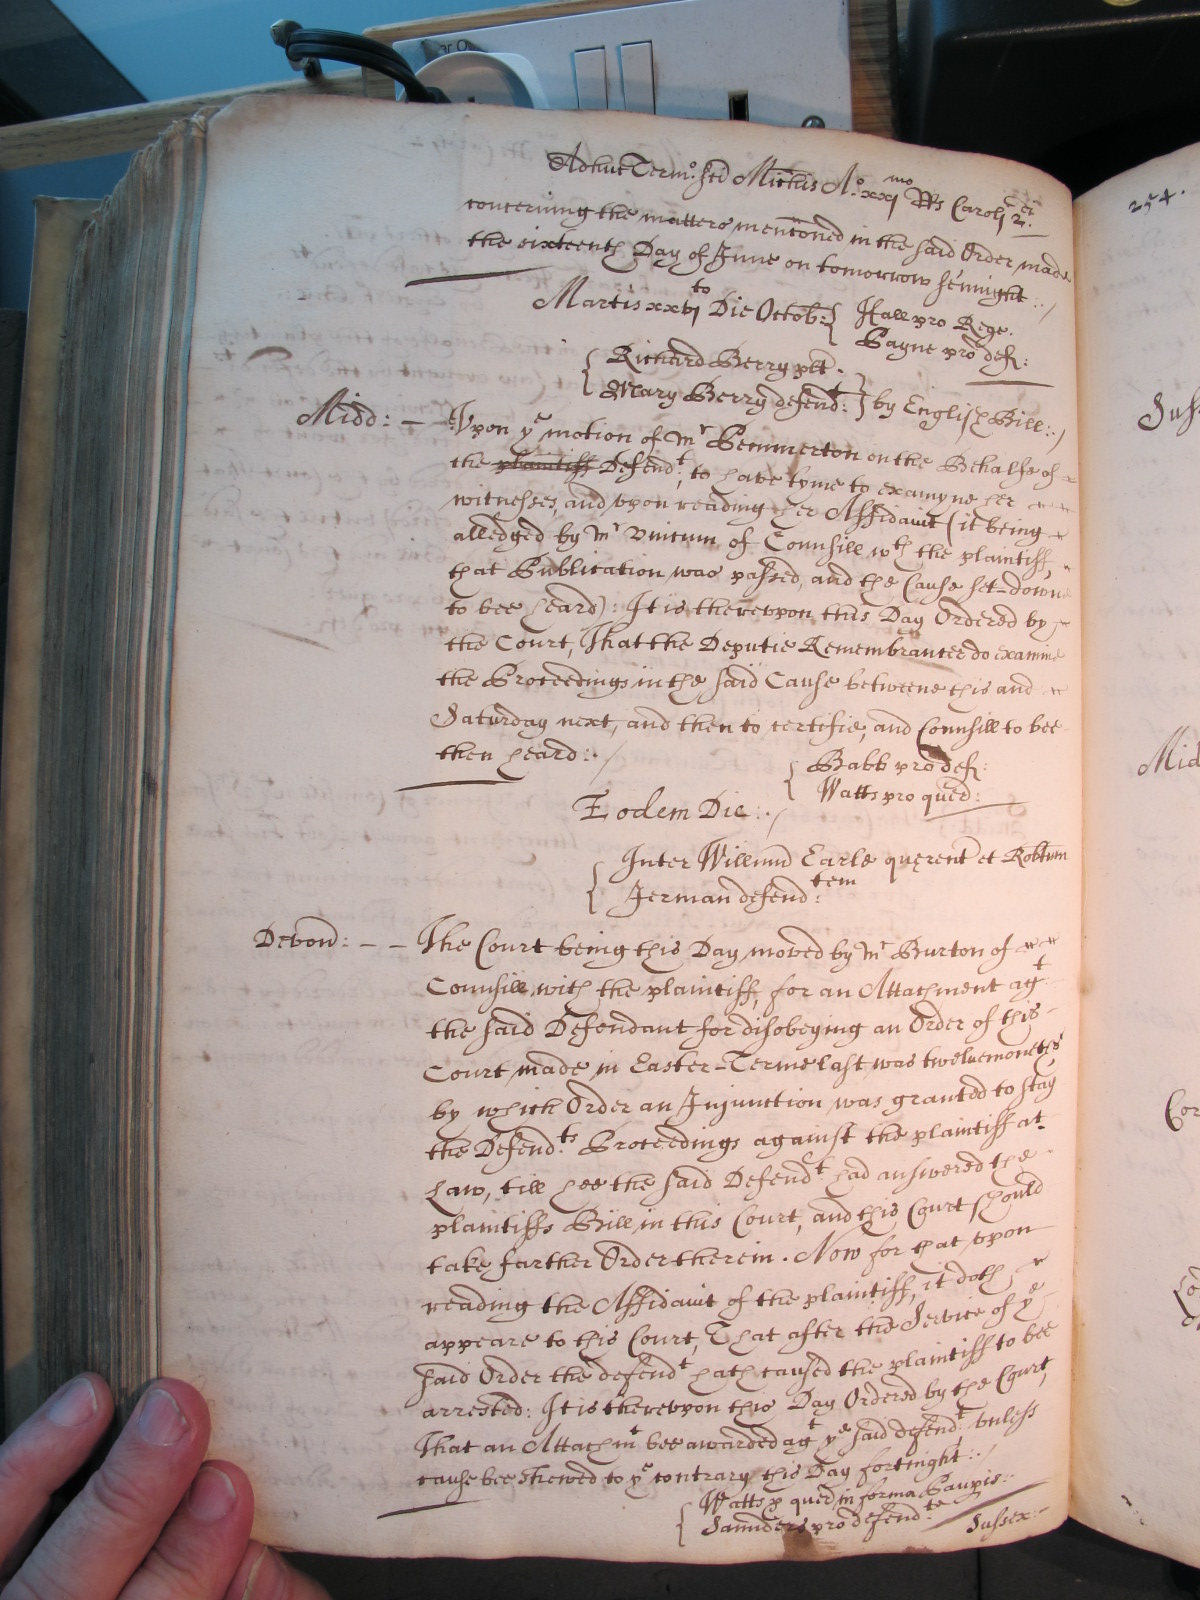 Adhuc Term:o Sci Michis A:o xxj mo Rs Caroli 2.di
concerning the matters mentoned in the said Order made
the sixteenth Day of June on tomorrow sennight:./
Martis xxvj to Die Octob: { Hall pro Rege.
Payne pro def:
{ Richard Berry plt.
Mary Berry defend:t } by English Bill:./
Midd: — Vpon ye motion of Mr Pemmerton on the Behalfe of
the plaintiff Defend:t, to have tyme to examyne her
witnesses, and vpon reading her Affidavit (it being
alledged by Mr of Counsill wth the plaintiff,
that Publication was passed, and the Cause set-downe
to bee heard): It is therevpon this Day Ordered by
the Court, That the Deputie Remembrancer do examine
the Proceedings in the said Cause betweene this and
Saturday next, and then to certifie, and Counsill to bee
then heard:./
{ Babb pro def:
Watts pro quer:
Eodem Die:./
{ Inter Willmum Earle querent et Robtum
Jerman defend:tem
Devon: — — The Court being this Day moved by Mr Burton of
Counsill with the plaintiff, for an Attachment agt
the said Defendant for disobeying an Order of this
Court made in Easter-Terme last was twelvemoneths
by which Order an Injunction was granted to stay
the Defend:ts Proceedings against the plaintiff at
Law, till hee the said Defendt had answered the
plaintiffs Bill in this Court, and this Court should
take farther Order therein. Now for that vpon
reading the Affidavit of the plaintiff, it doth
appeare to this Court, That after the Service of ye
said Order the defendt hath caused the plaintiff to bee
arrested: It is therevpon this Day Ordered by the Court,
That an Attachmt bee awarded agt ye said defend:t vnless
cause bee shewed to ye contrary this Day fortnight:./
{ Watts p quer in forma Paupis:
Saunders pro defend:te
Sussex:
254.
Suss
Mid
Cor